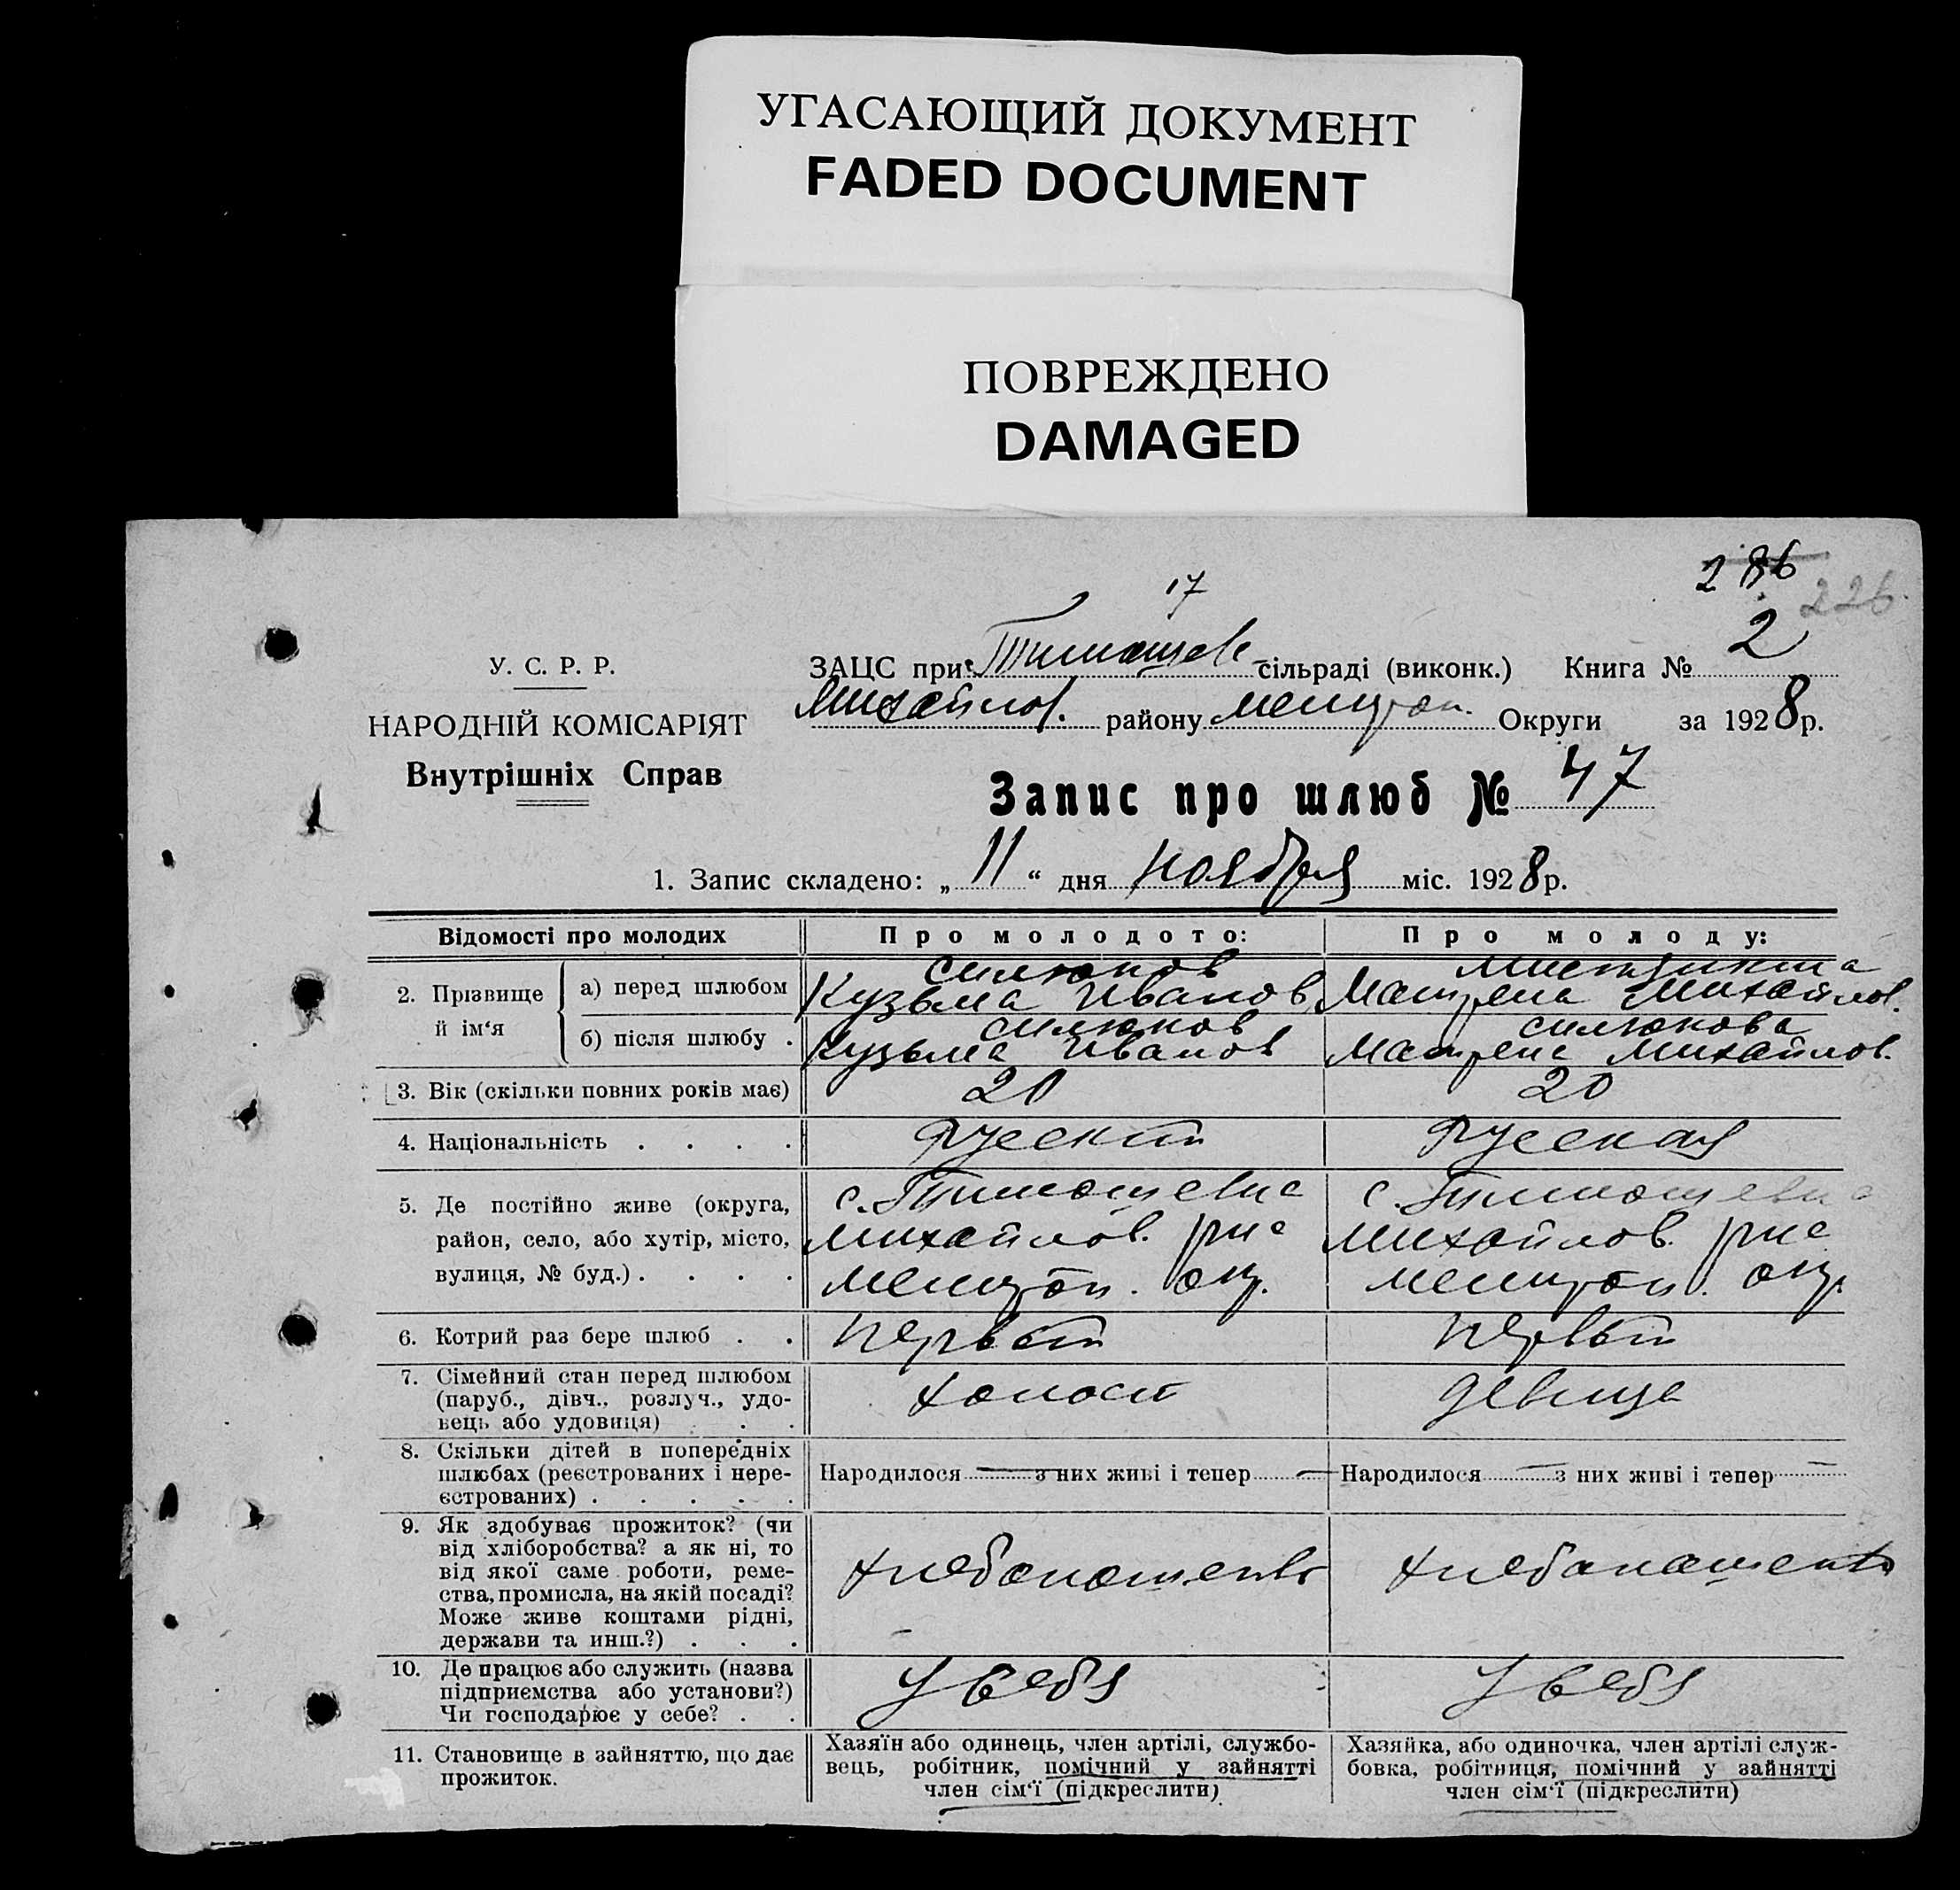 УГАСАЮЩИЙ ДОКУМЕНТ
FADED DOCUMENT
ПОВРЕЖДЕНО
DAMAGED
286
226.
17
У. С. Р. Р.
НАРОДНІЙ КОМІСАРІЯТ
Внутрішніх Справ
ЗАЦС при Тимошев сільраді (виконк.) Книга № 2
Михайлов. району Мелитоп. Округи за 1928 р.
Запис про шлюб № 47
1. Запис складено: „ 11 “ дня ноября міс. 1928 р.
Відомості про молодих Про молодого: Про молоду:
2. Прізвище й ім‘я
а) перед шлюбом
Силюков
Кузьма Иванов
Матрена Михайлов.
б) після шлюбу .
Силюков
Кузьма Иванов
Силюкова
Матрена Михайлов.
3. Вік (скільки повних років має) 20 20
4. Національність . . . . Русский Русская
5. Де постійно живе (округа,
район, село, або хутір, місто,
вулиця, № буд.) . . . .
с. Тимошевка
Михайлов. р-на
Мелитоп. окр.
с. Тимошевка
Михайлов. р-на
Мелитоп. окр.
6. Котрий раз бере шлюб . . Первый Первый
7. Сімейний стан перед шлюбом
(паруб., дівч., розлуч., удо-
вець або удовиця) . . .
холост
девица
8. Скільки дітей в попередніх
шлюбах (реєстрованих і нере-
єстрованих) . . . . .
Народилося — з них живі і тепер —
Народилося — з них живі і тепер —
9. Як здобуває прожиток? (чи
від хліборобства? а як ні, то
від якої саме роботи, реме-
ства, промисла, на якій посаді?
Може живе коштами рідні,
держави та инш.?) . . .
хлебопашеств
хлебопашеств
10. Де працює або служить (назва
підприємства або установи?)
Чи господарює у себе? . .
У себя
У себя
11. Становище в зайняттю, що дає
прожиток.
Хазяїн або одинець, член артілі, службо-
вець, робітник, помічний у зайнятті
член сім‘ї (підкреслити)
Хазяйка, або одиночка, член артілі служ-
бовка, робітниця, помічний у зайнятті
член сім‘ї (підкреслити)